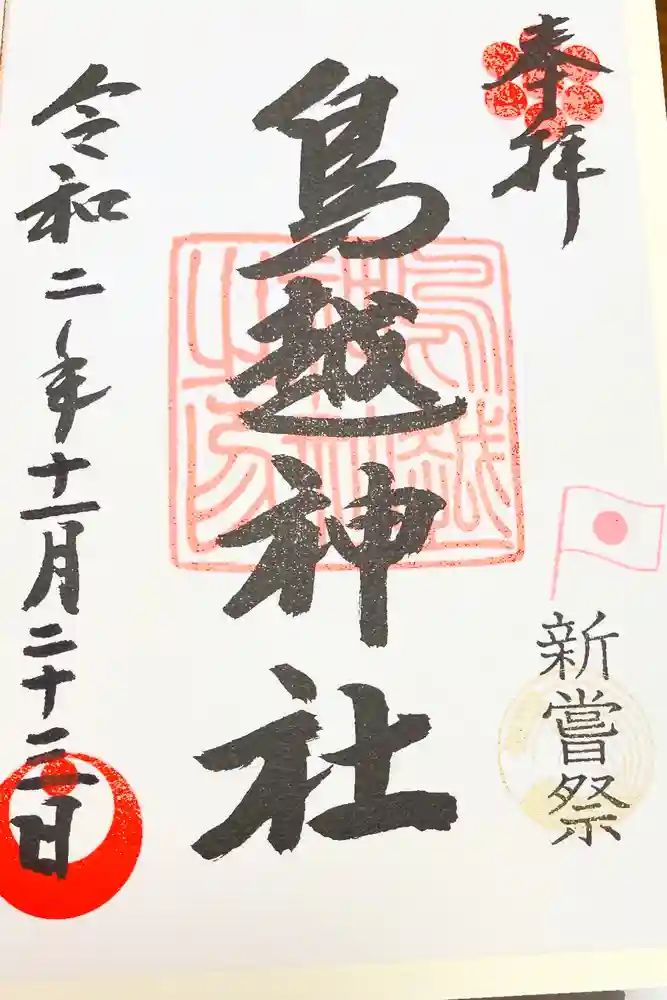 奉拝
新嘗祭
鳥越神社
令和二年十一月二十三日